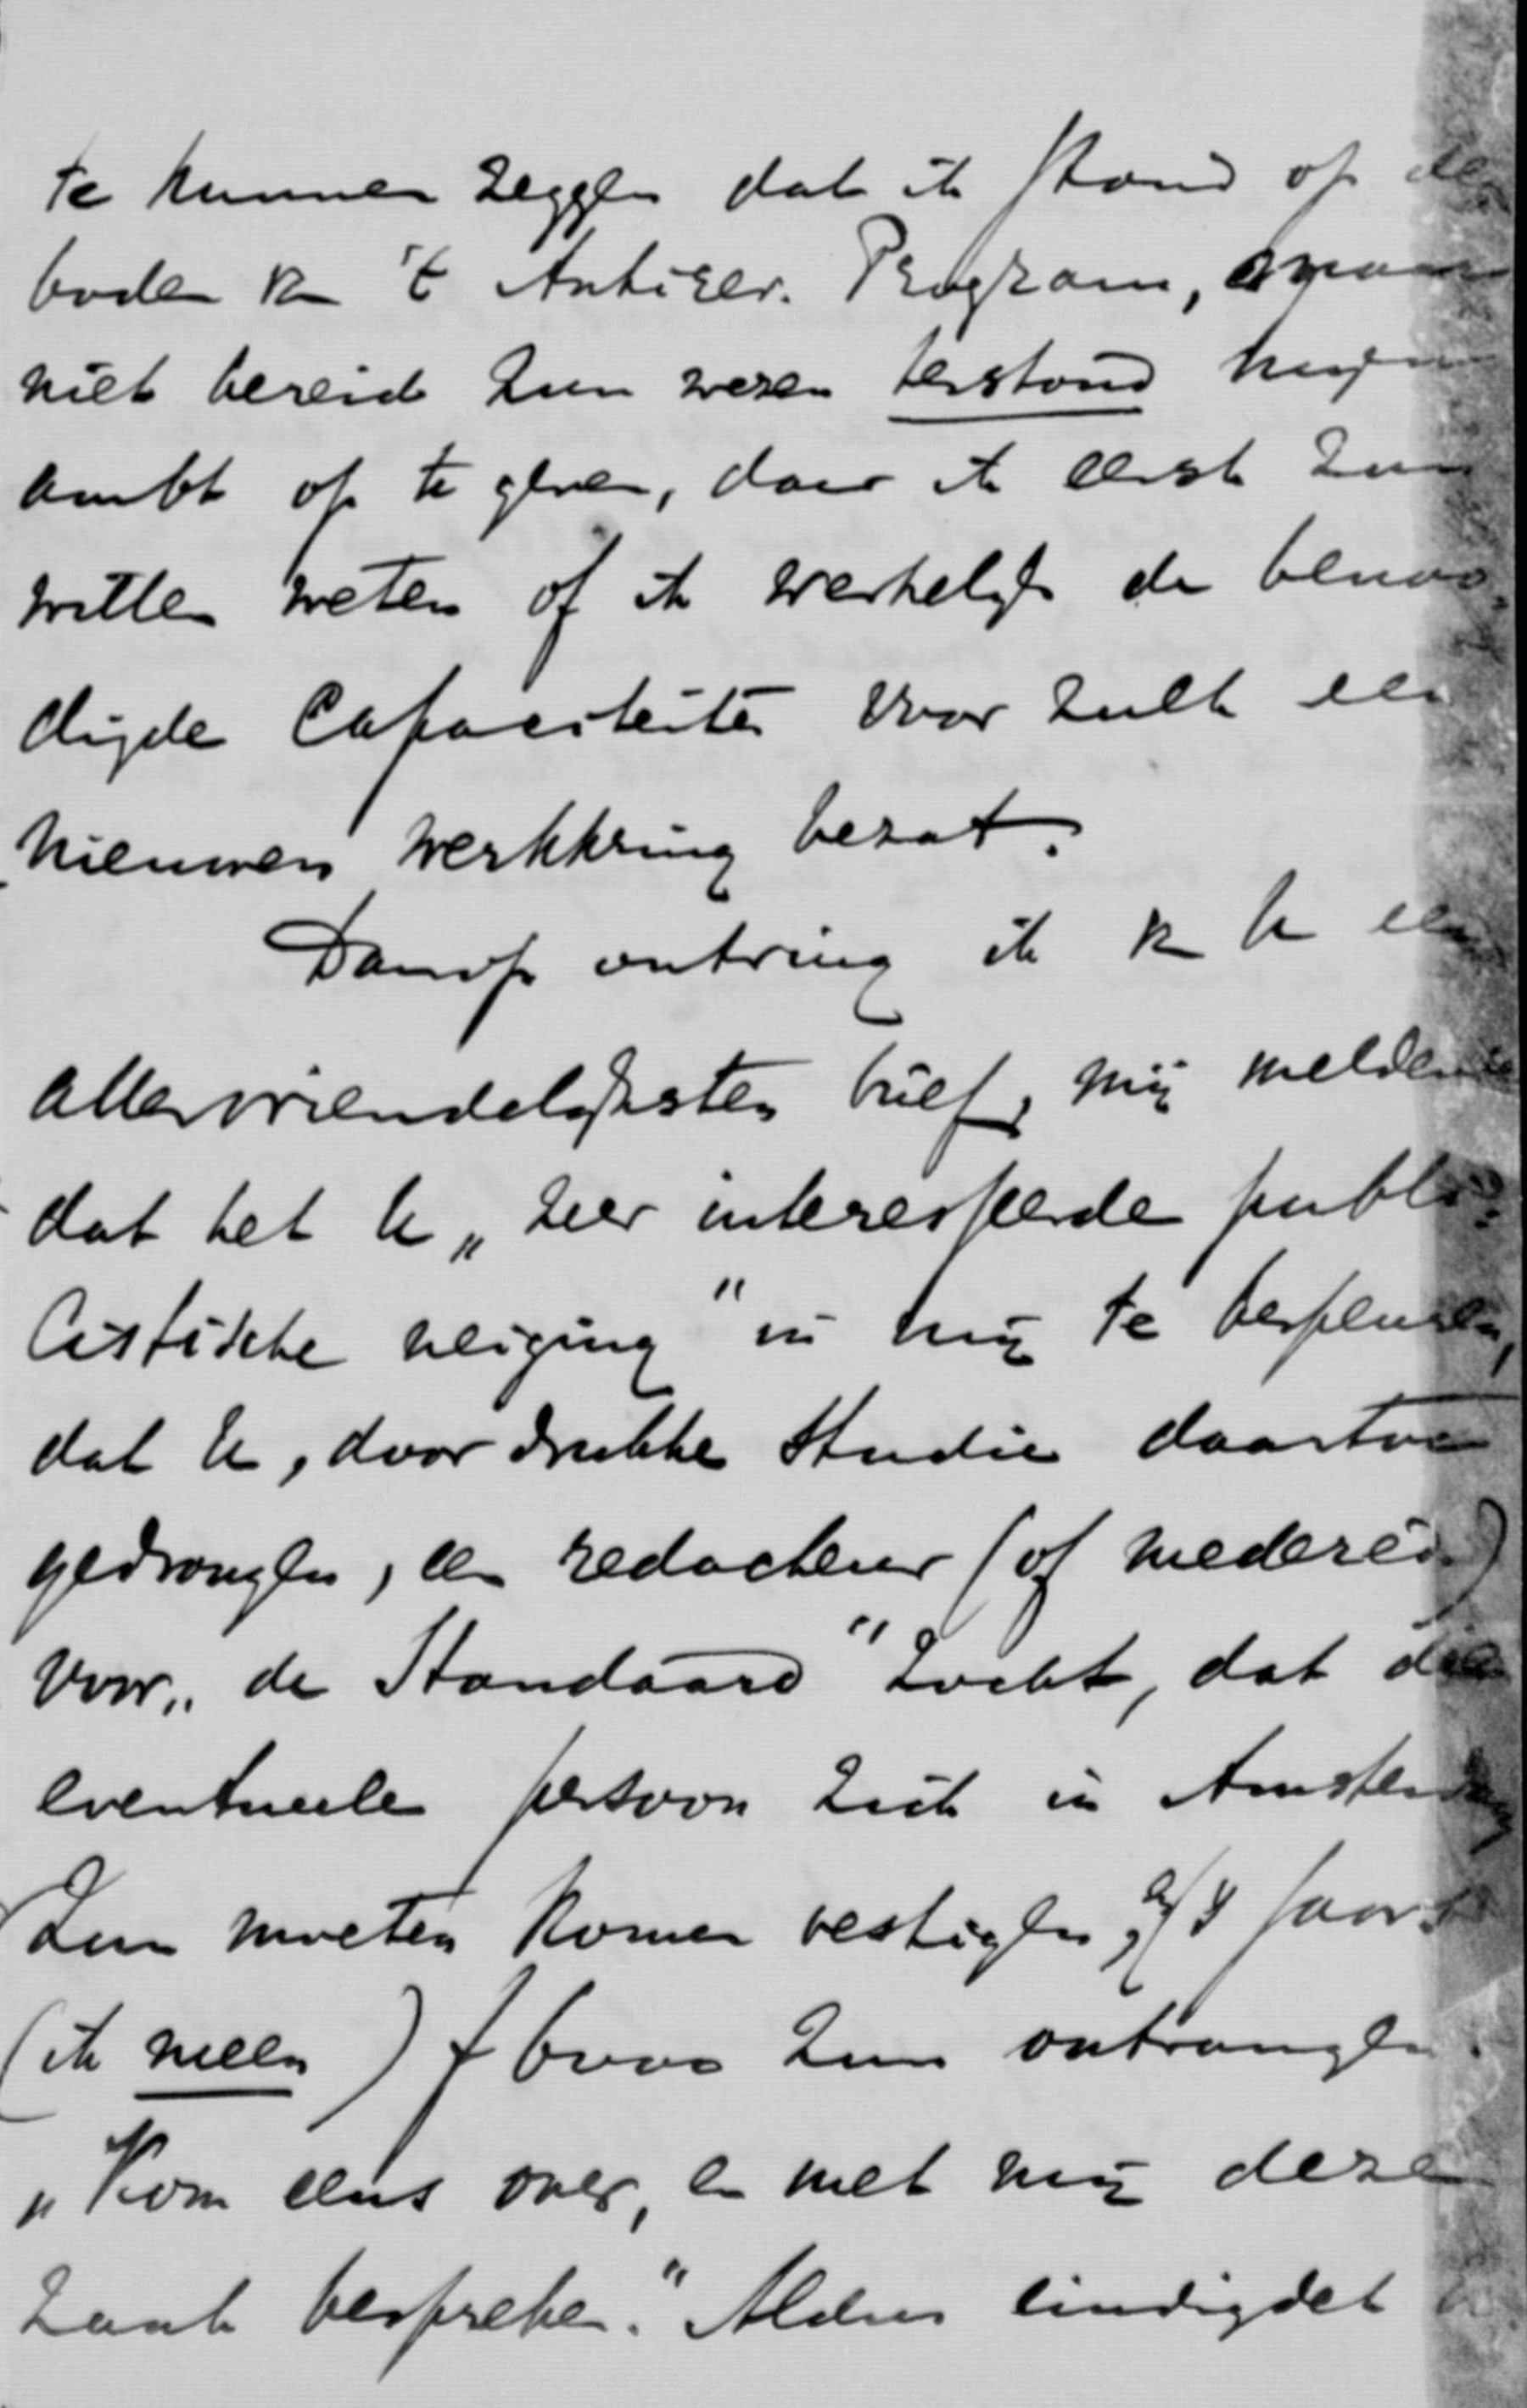 te kunnen zeggen dat ik stond op den
bodem v 't Antirev. Program, maar
niet bereid zou wezen terstond mijn
ambt op te geven, daar ik eerst zou
willen weten of ik werkelijk de benoo-
digde capaciteiten voor zulk een
nieuwen werkkring bezat.
Daarop ontving ik v U een
allervriendelijksten brief, mij meldende
dat het U „zeer interesseerde publi-
cistische neiging" in mij te bespeuren,
dat U, door drukke studie daartoe
gedrongen, een redacteur (of mederéd.)
voor „de Standaard" zocht, dat die
eventueele persoon zich in Amsterdam
zou moeten komen vestigen, & 's jaars
(ik meen ) f bovo zou ontvangen.
„Kom eens over, en met mij deze
zaak bespreken." Aldus eindigdet U